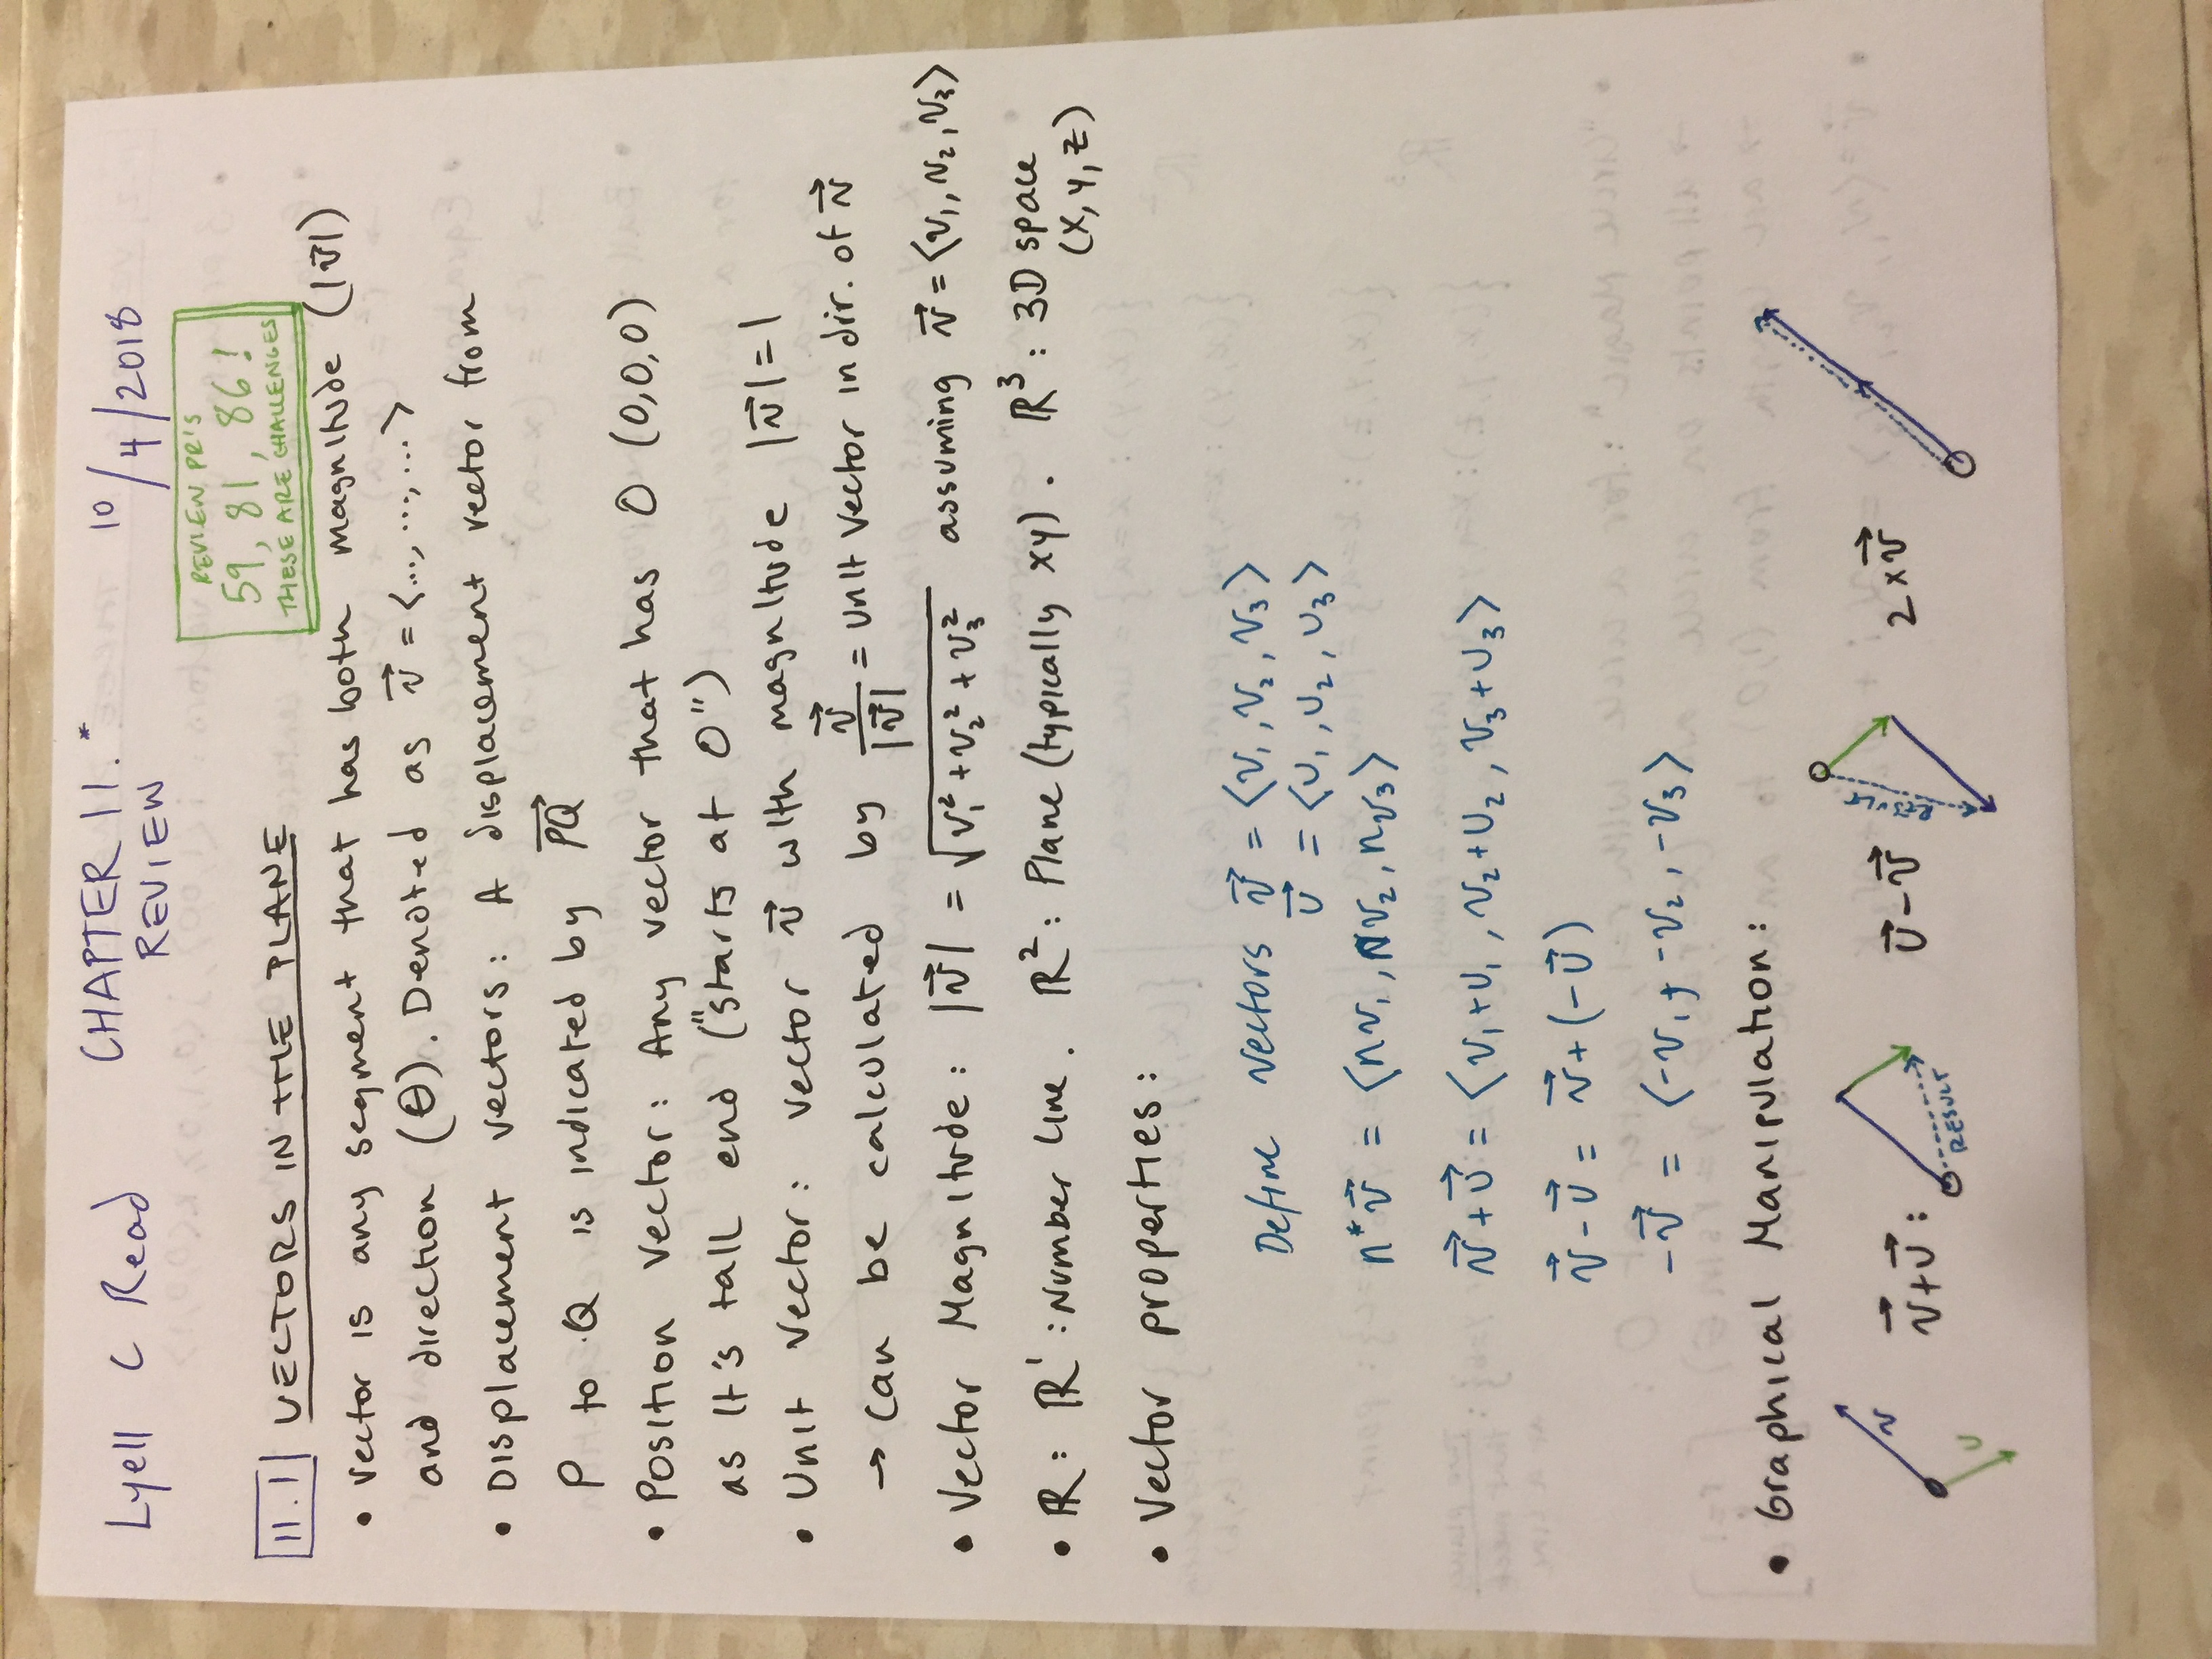 Lyell C Read CHAPTER 11.* 10/4/2018
REVIEW
REVIEW PR'S
59, 81, 86!
THESE ARE CHALLENGES
11.1 VECTORS IN THE PLANE
• Vector is any segment that has both magnitude (|v⃗|)
and direction (θ). Denoted as v⃗ = ⟨..., ..., ...⟩
• Displacement vectors: A displacement vector from
P to Q is indicated by PQ⃗
• Position Vector: Any vector that has O (0,0,0)
as it's tail end ("starts at O")
• Unit Vector: vector v⃗ with magnitude |v⃗| = 1
→ can be calculated by v⃗/|v⃗| = unit vector in dir. of v⃗
• Vector Magnitude: |v⃗| = √(v₁² + v₂² + v₃²) assuming v⃗ = ⟨v₁, v₂, v₃⟩
• ℝ: ℝ¹: Number line. ℝ²: Plane (typically xy). ℝ³: 3D space
(x, y, z)
• Vector properties:
Define vectors v⃗ = ⟨v₁, v₂, v₃⟩
u⃗ = ⟨u₁, u₂, u₃⟩
n*v⃗ = ⟨nv₁, nv₂, nv₃⟩
v⃗ + u⃗ = ⟨v₁+u₁, v₂+u₂, v₃+u₃⟩
v⃗ - u⃗ = v⃗ + (-u⃗)
-v⃗ = ⟨-v₁, -v₂, -v₃⟩
• Graphical Manipulation:
v
u
v⃗+u⃗:
RESULT
u⃗-v⃗
RESULT
2×v⃗